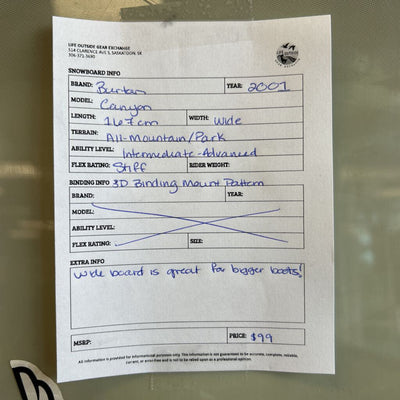 LIFE OUTSIDE GEAR EXCHANGE
514 CLARENCE AVE S, SASKATOON, SK
306-371-5690
LIFE OUTSIDE
SNOWBOARD INFO
BRAND: Burton YEAR: 2007
MODEL: Canyon
LENGTH: 167cm WIDTH: Wide
TERRAIN: All-Mountain/Park
ABILITY LEVEL: Intermediate-Advanced
FLEX RATING: Stiff RIDER WEIGHT:
BINDING INFO 3D Binding Mount Pattern
BRAND: YEAR:
MODEL:
ABILITY LEVEL:
FLEX RATING: SIZE:
EXTRA INFO
Wide board is great for bigger boots!
MSRP: PRICE: $99
All information is provided for informational purposes only. This information is not guaranteed to be accurate, complete, reliable,
current, or error-free and is not to be relied upon as a professional opinion.